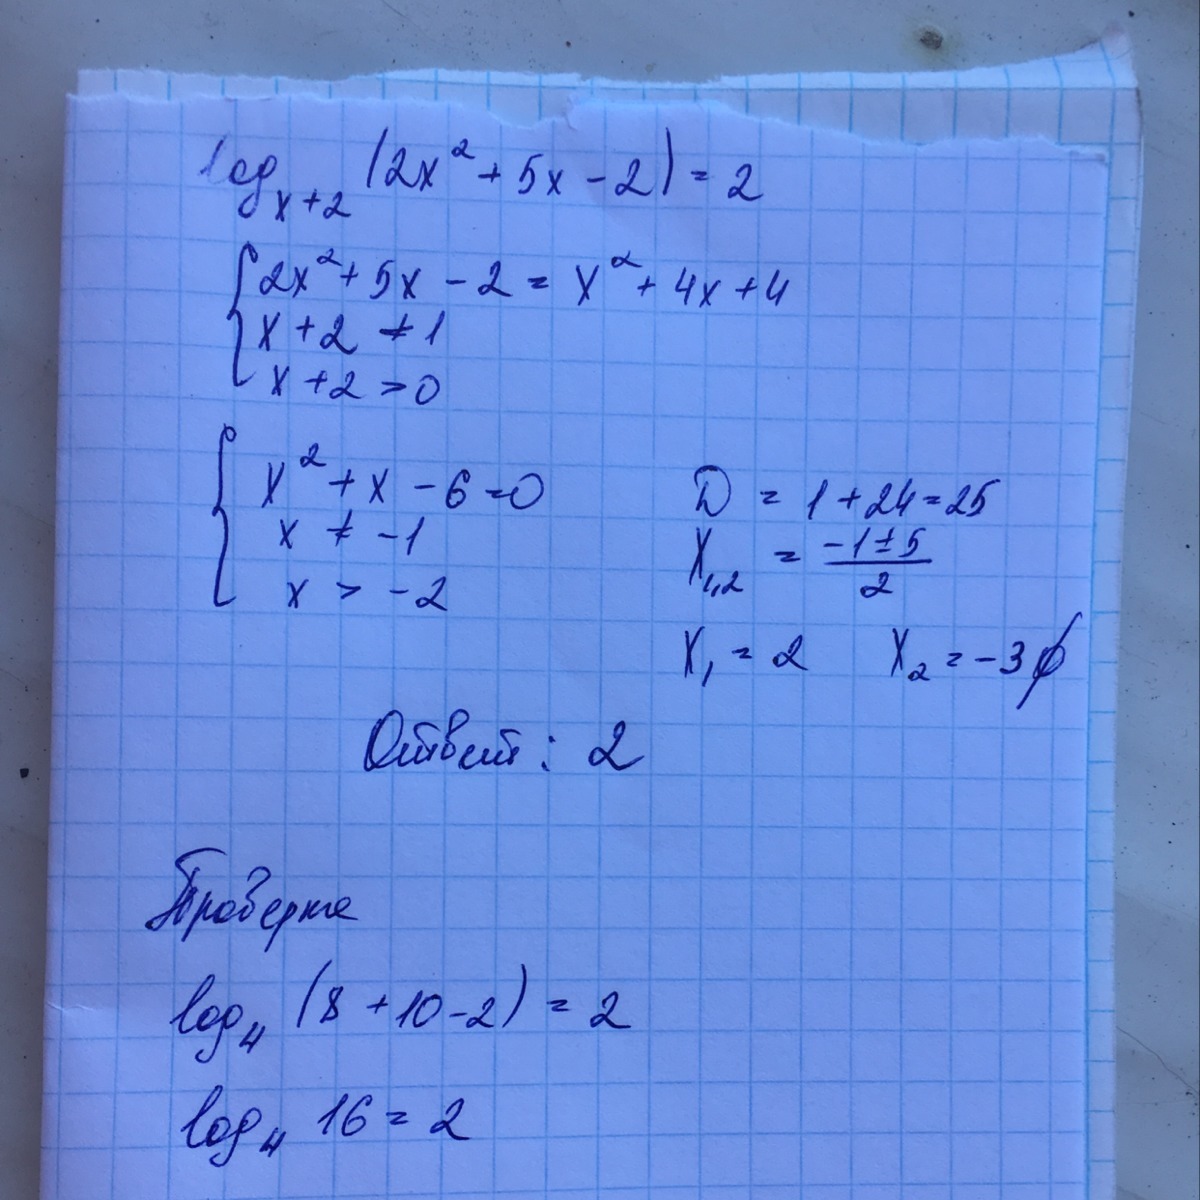 log_{x+2} (2x² + 5x - 2) = 2
2x² + 5x - 2 = x² + 4x + 4
x + 2 ≠ 1
x + 2 > 0
x² + x - 6 = 0
x ≠ -1
x > -2
D = 1 + 24 = 25
x_{1,2} = \frac{-1 ± 5}{2}
x₁ = 2 x₂ = -3 ∅
Ответ: 2
Проверка
log₄ (8 + 10 - 2) = 2
log₄ 16 = 2